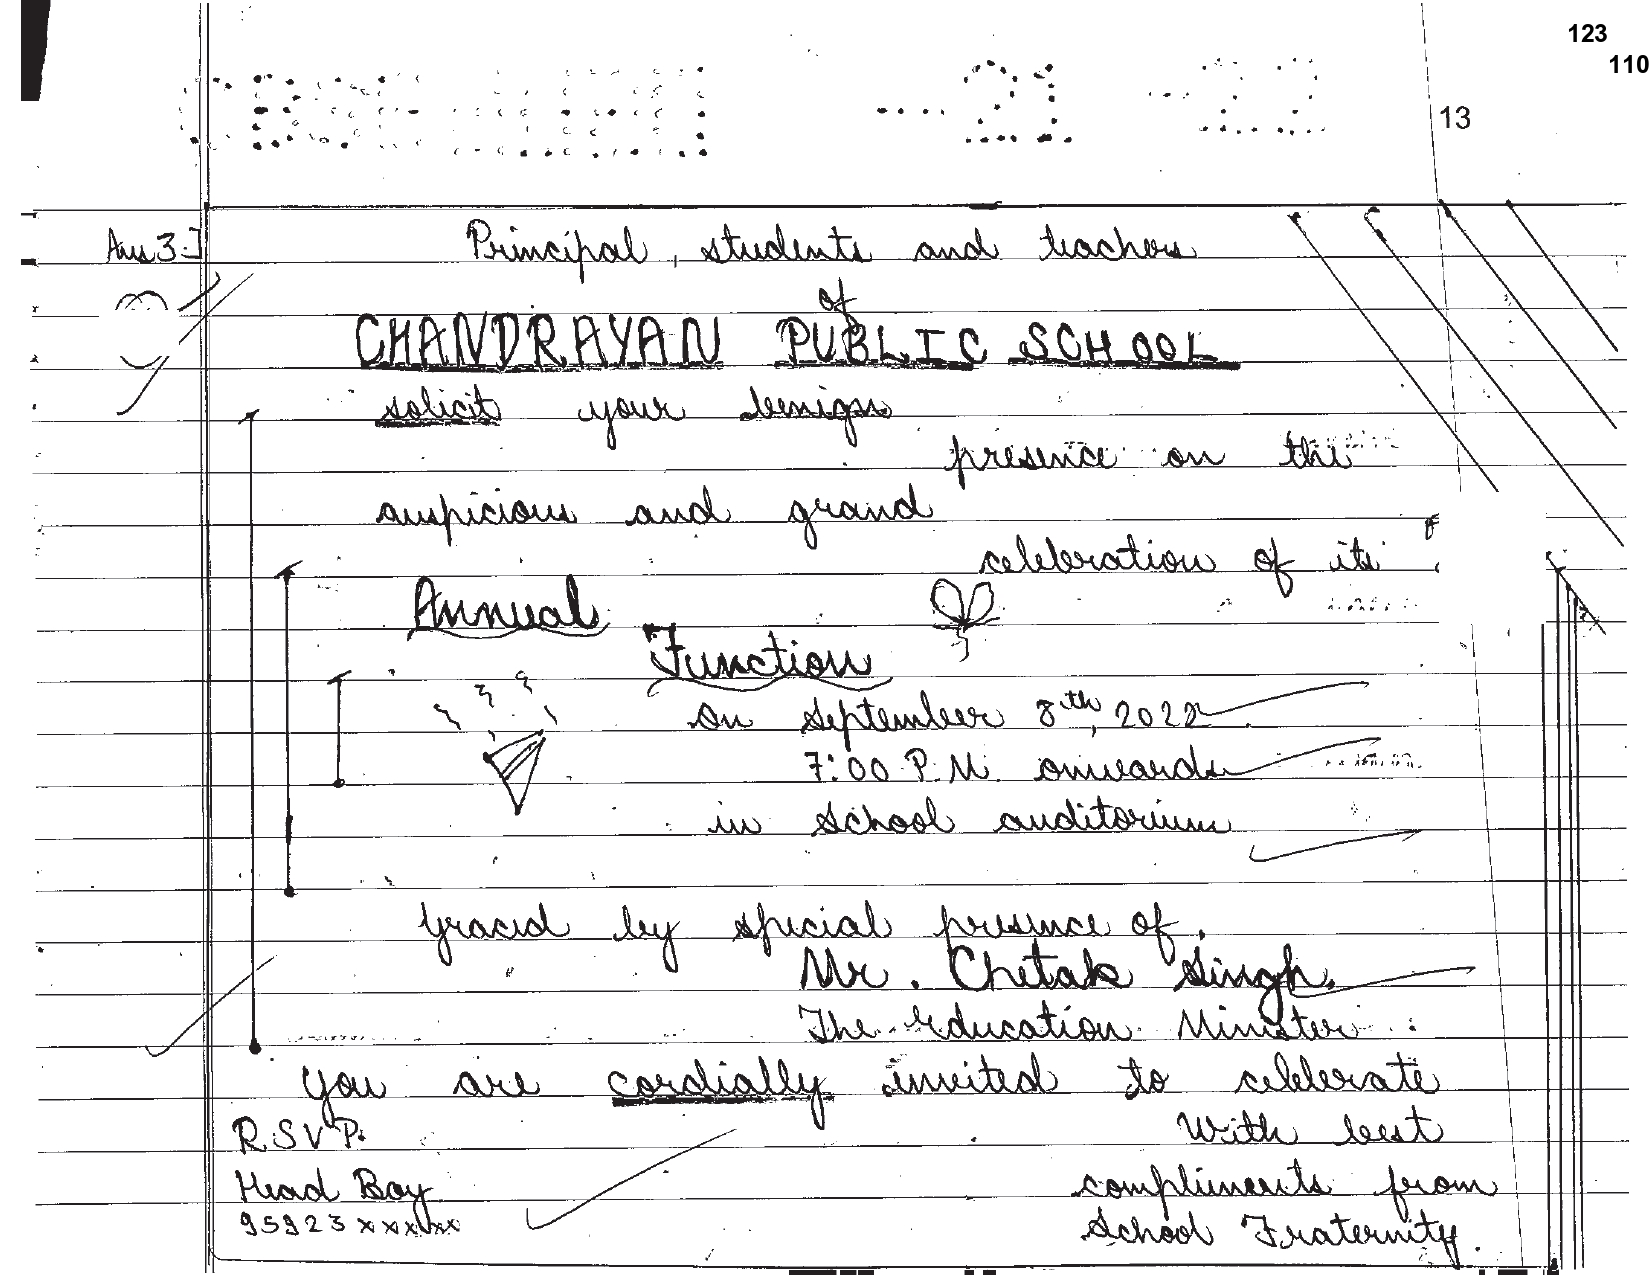 123
110
13
Ans 3.]
Principal, students and teachers
of
CHANDRAYAN PUBLIC SCHOOL
solicit your benign
presence on the
auspicious and grand
celebration of its
Annual
Function
on September 8th, 2022
7:00 P.M. onwards
in school auditorium
Graced by special presence of,
Mr. Chetak Singh.
The Education Minister
You are cordially invited to celebrate
R.S.V.P.
With best
Head Boy
compliments from
95923xxxxx
School Fraternity.